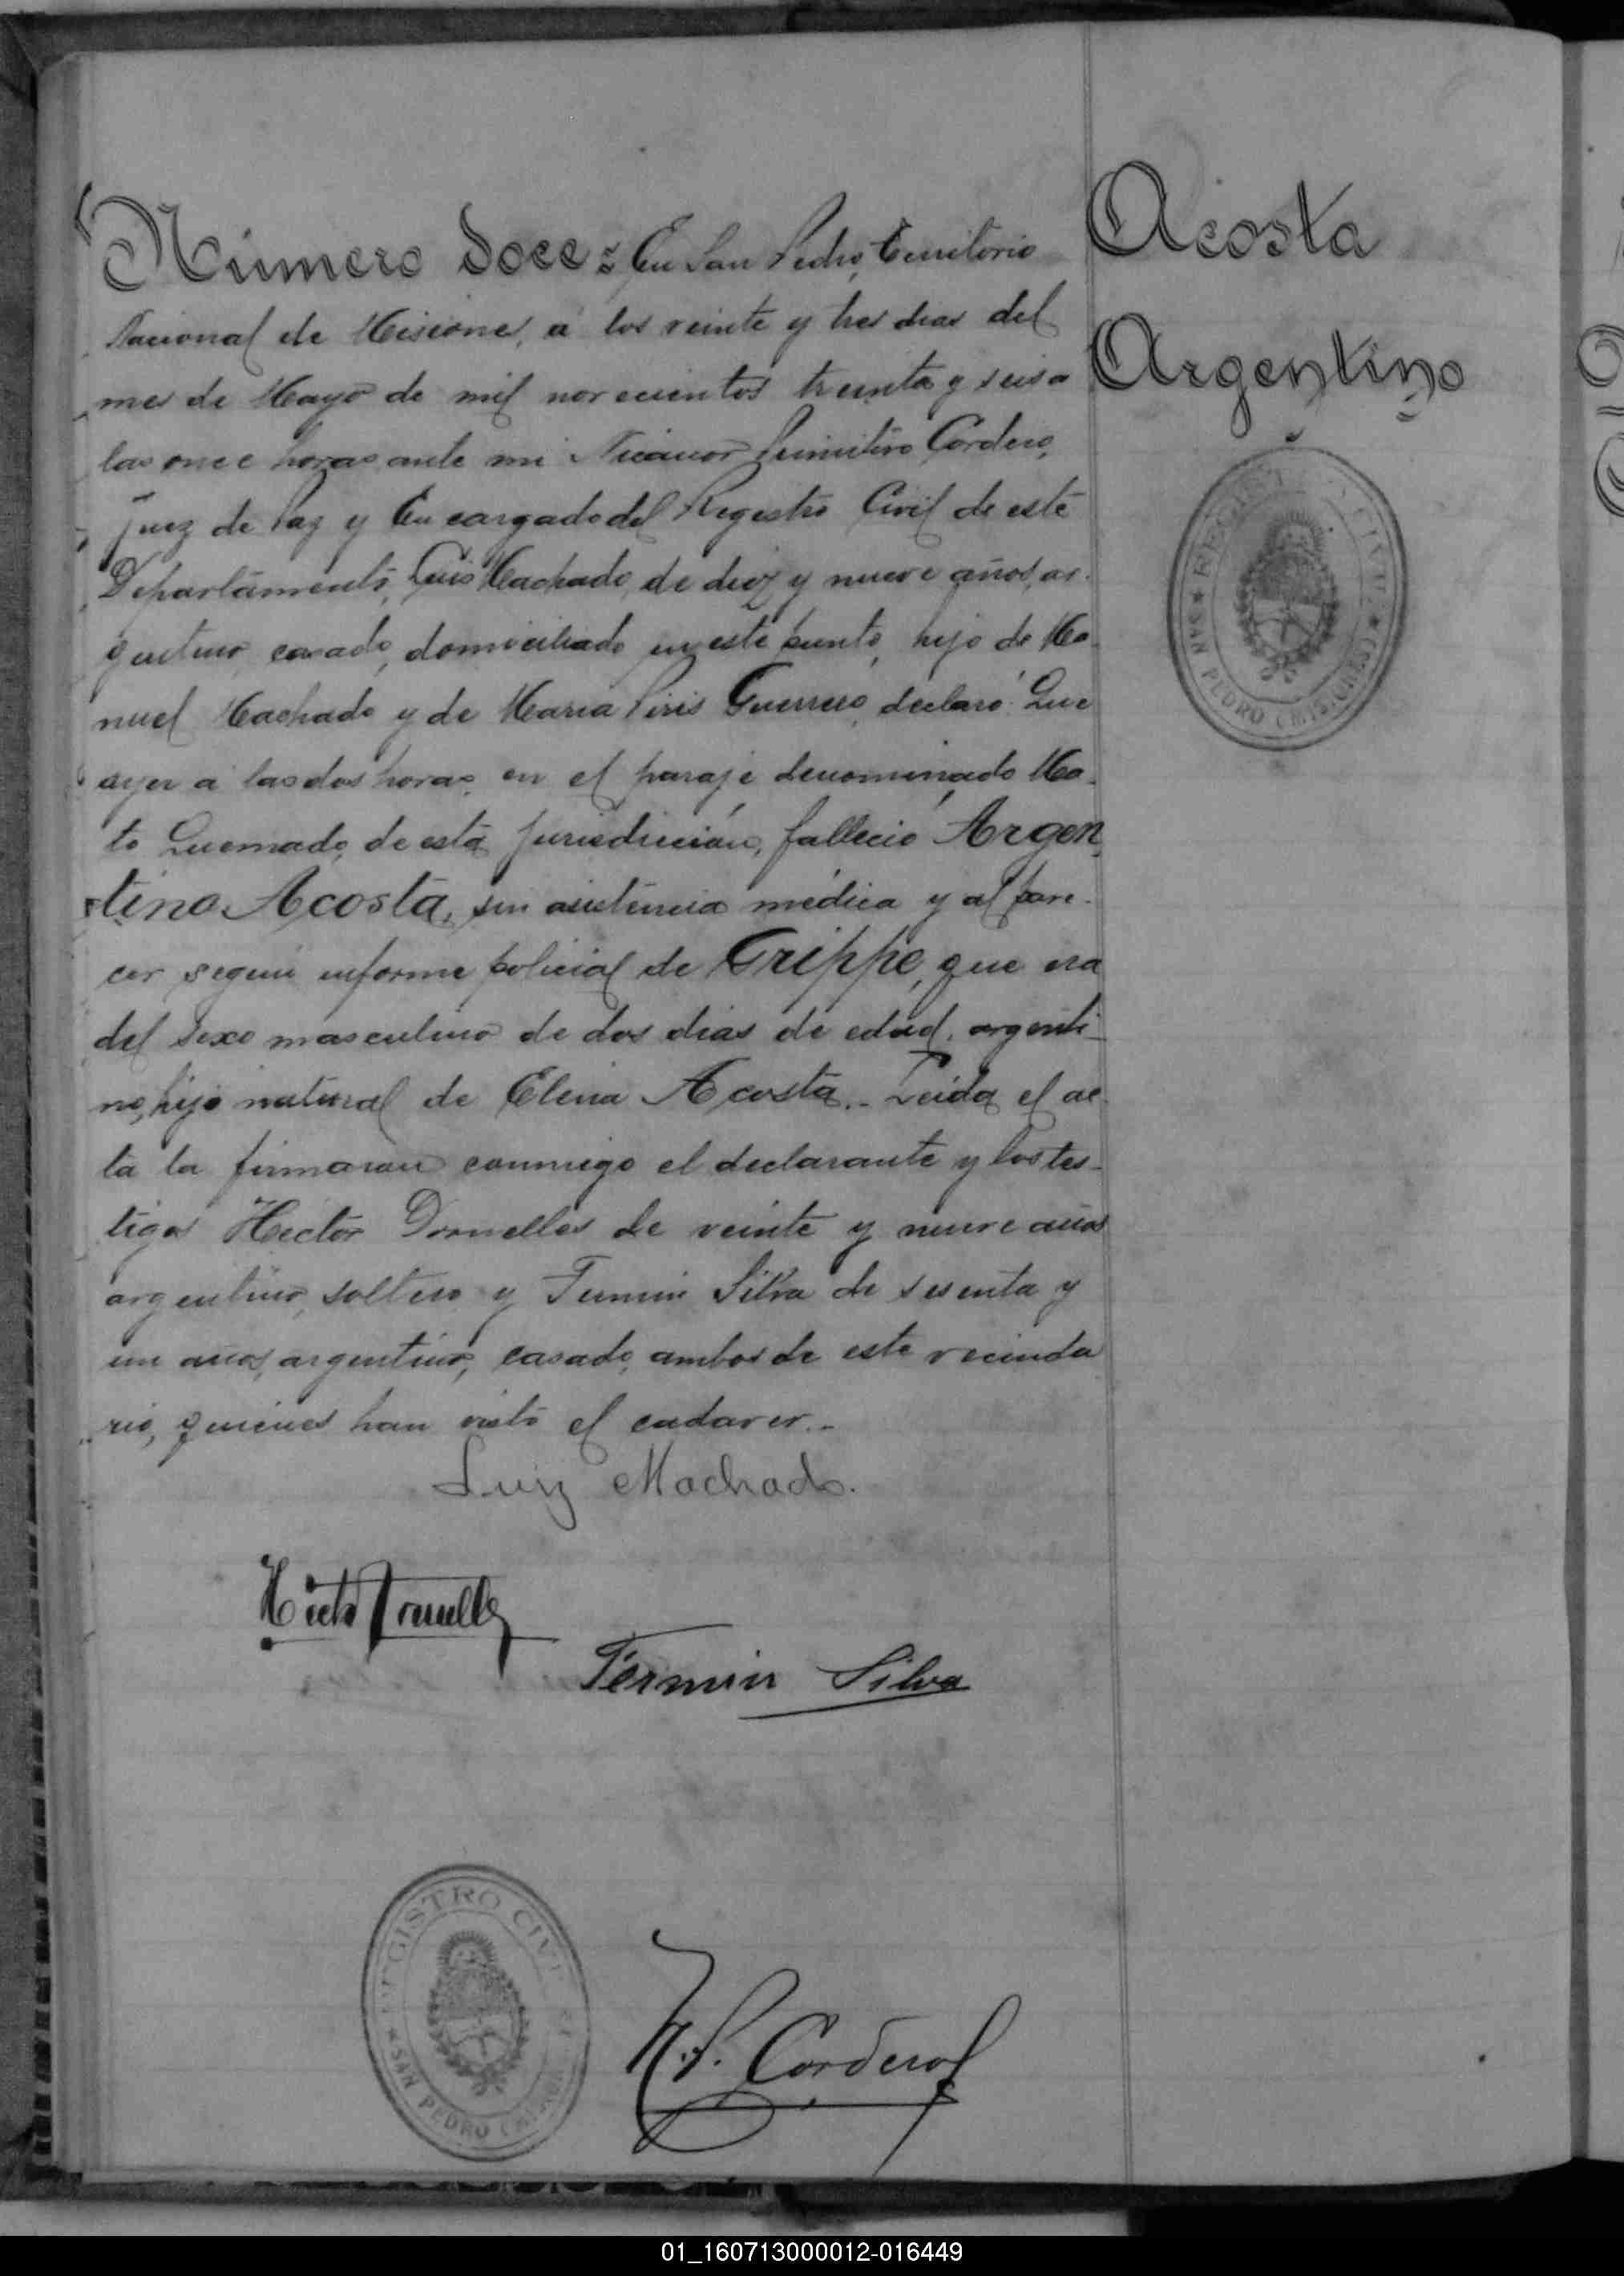 Número doce: En San Pedro, Territorio
Nacional de Misiones, á los veinte y tres dias del
mes de Mayo de mil novecientos treinta y seis a
las once horas ante mi Nicanor Primitivo Cordero,
Juez de Paz y Encargado del Registro Civil de este
Departamento, Luis Machado, de diez y nueve años, ar-
gentino, casado, domiciliado en este punto, hijo de Ma-
nuel Machado y de Maria Piris Guerrero, declaró: Que
ayer a las dos horas en el paraje denominado Ma-
to Quemado, de esta jurisdicción, falleció Argen
tino Acosta, sin asistencia médica y al pare-
cer según informe policial de Grippe, que era
del sexo masculino de dos dias de edad, argenti-
no, hijo natural de Elena Acosta.- Leida el ac-
ta la firmaron conmigo el declarante y los tes-
tigos Hector Dornelles de veinte y nueve años
argentino, soltero y Fermin Silva de sesenta y
un años, argentino, casado, ambos de este vecinda
rio, quienes han visto el cadaver.-
Luiz Machado.
Fermin Silva
N.P. Cordero
Acosta
Argentino
REGISTRO CIVIL
SAN PEDRO (MISIONES)
REGISTRO CIVIL
SAN PEDRO (MISIONES)
01_160713000012-016449